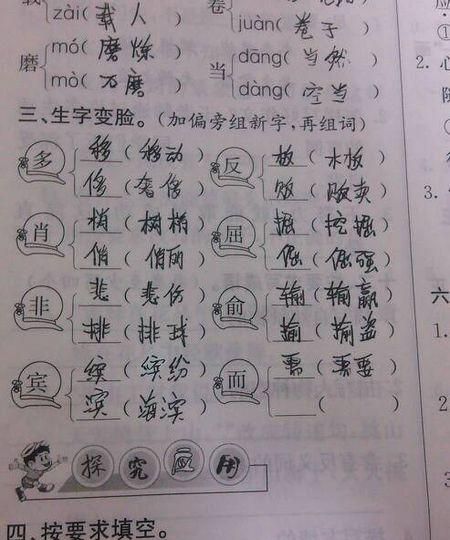 zài(载人) juàn(卷子)
磨 mó(磨炼) 当 dāng(当然)
mò(石磨) dàng(空当)
三、生字变脸。(加偏旁组新字,再组词)
多 移(移动) 反 板(木板)
侈(奢侈) 贩(贩卖)
肖 梢(树梢) 屈 掘(挖掘)
俏(俏丽) 倔(倔强)
非 悲(悲伤) 俞 输(输赢)
排(排球) 偷(偷盗)
宾 缤(缤纷) 而 需(需要)
滨(海滨) ( )
探究应用
四、按要求填空。
2.
3.
六
1.
2